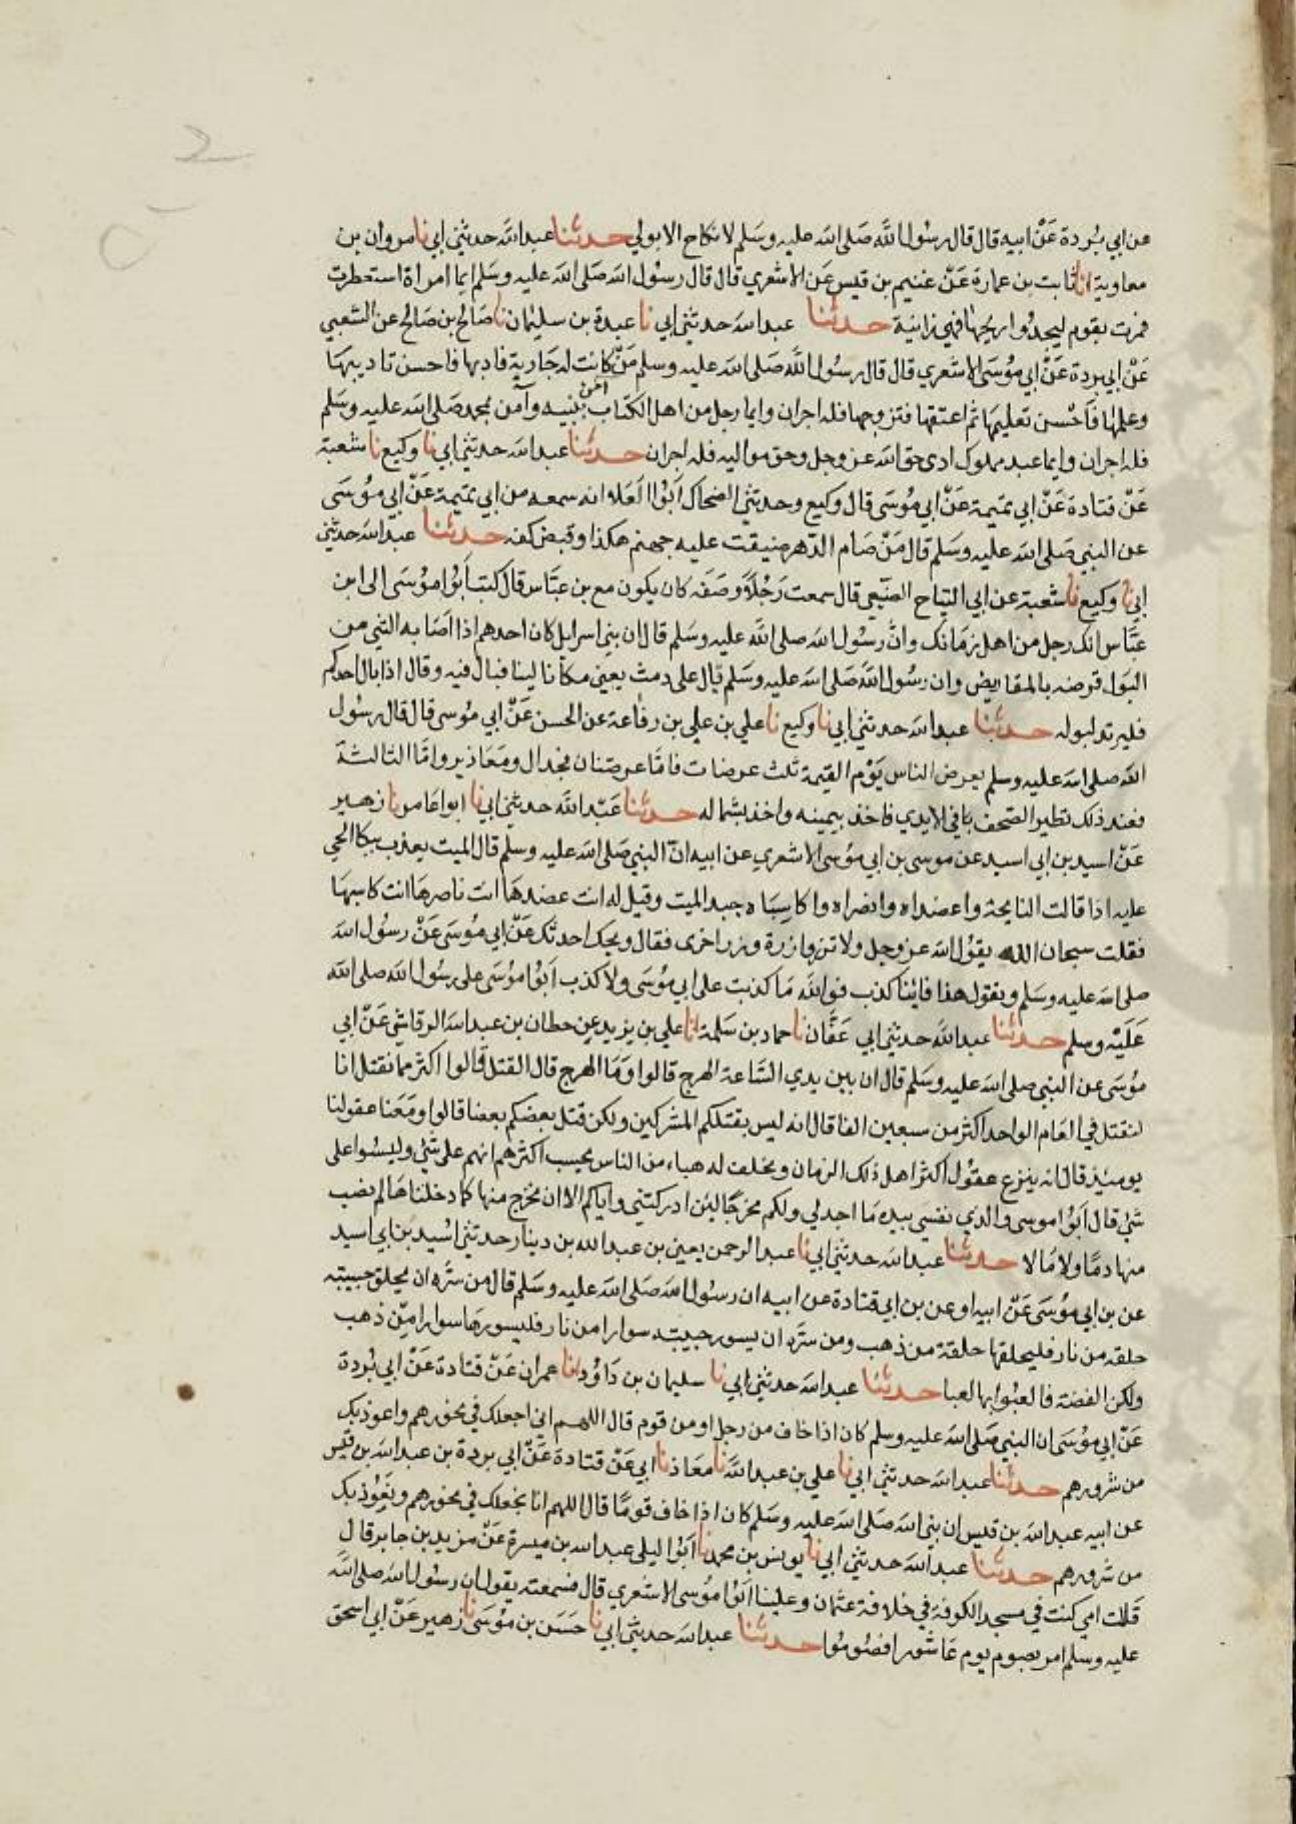 عن ابي بردة عن ابيه قال قال رسول الله صلى الله عليه وسلم لا نكاح الا بولي حدثنا عبد الله حدثني ابي نا مروان بن
معاوية انا ثابت بن عمارة عن غنيم بن قيس عن الاشعري قال قال رسول الله صلى الله عليه وسلم ايما امراة استعطرت
فمرت بقوم ليجدوا ريحها فهي زانية حدثنا عبد الله حدثني ابي نا عبدة بن سليمان نا صالح بن صالح عن الشعبي
عن ابي بردة عن ابي موسى الاشعري قال قال رسول الله صلى الله عليه وسلم من كانت له جارية فادبها فاحسن تاديبها
وعلمها فاحسن تعليمها ثم اعتقها فتزوجها فله اجران وايما رجل من اهل الكتاب امن بنبيه وآمن بمحمد صلى الله عليه وسلم
فله اجران وايما عبد مملوك ادى حق الله عز وجل وحق مواليه فله اجران حدثنا عبد الله حدثني ابي نا وكيع نا شعبة
عن قتادة عن ابي تميمة عن ابي موسى قال وكيع وحدثني الضحاك ابوا العلاء انه سمعه من ابي تميمة عن ابي موسى
عن النبي صلى الله عليه وسلم قال من صام الدهر ضيقت عليه جهنم هكذا وقبض كفه حدثنا عبد الله حدثني
ابي نا وكيع نا شعبة عن ابي التياح الضبعي قال سمعت رجلا وصفه كان يكون مع بن عباس قال كتب ابوا موسى الى ابن
عباس انك رجل من اهل زمانك وان رسول الله صلى الله عليه وسلم قال ان بني اسرايل كان احدهم اذا اصابه الشي من
البول قرضه بالمقاريض وان رسول الله صلى الله عليه وسلم قال على دمث يعني مكانا لينا فبال فيه وقال اذا بال احدكم
فليرتد لبوله حدثنا عبد الله حدثني ابي نا وكيع نا علي بن علي بن رفاعة عن الحسن عن ابي موسى قال قال رسول
الله صلى الله عليه وسلم يعرض الناس يوم القيمة ثلث عرضات فاما عرضتان فجدال ومعاذير واما الثالثة
فعند ذلك تطير الصحف في الايدي فاخذ بيمينه واخذ بشماله حدثنا عبد الله حدثني ابي نا ابوا عامر نا زهير
عن اسيد بن ابي اسيد عن موسى بن ابي موسى الاشعري عن ابيه ان النبي صلى الله عليه وسلم قال الميت يعذب ببكا الحي
عليه اذا قالت النايحة واعضداه وانصراه واكاسباه جبد الميت وقيل له انت عضدها انت ناصرها انت كاسبها
فقلت سبحان الله يقول الله عز وجل ولا تزر وازرة وزر اخرى فقال ويحك احدثك عن ابي موسى عن رسول الله
صلى الله عليه وسلم وتقول هذا فاينا كذب فوالله ما كذبت على ابي موسى ولا كذب ابوا موسى على رسول الله صلى الله
عليه وسلم حدثنا عبد الله حدثني ابي عفان نا حماد بن سلمة انا علي بن يزيد عن حطان بن عبد الله الرقاشي عن ابي
موسى عن النبي صلى الله عليه وسلم قال ان بين يدي الساعة الهرج قالوا وما الهرج قال القتل قالوا اكثر مما نقتل انا
لنقتل في العام الواحد اكثر من سبعين الفا قال انه ليس بقتلكم المشركين ولكن قتل بعضكم بعضا قالوا ومعنا عقولنا
يوميئذ قال انه ينزع عقول اكثر اهل ذلك الزمان ويخلف له هباء من الناس يحسب اكثرهم انهم على شي وليسوا على
شي قال ابوا موسى والذي نفسي بيده ما اجد لي ولكم مخرجا لئن ادركتني واياكم الا ان نخرج منها كما دخلناها لم نصب
منها دما ولا مالا حدثنا عبد الله حدثني ابي نا عبد الرحمن يعني بن عبد الله بن دينار حدثني اسيد بن ابي اسيد
عن بن ابي موسى عن ابيه او عن بن ابي قتادة عن ابيه ان رسول الله صلى الله عليه وسلم قال من سره ان يحلق حبيبته
حلقه من نار فليحلقها حلقة من ذهب ومن سره ان يسور حبيبته سوارا من نار فليسورها سوارا من ذهب
ولكن الفضة فالعبوا بها لعبا حدثنا عبد الله حدثني ابي نا سليمان بن داود انا عمران عن قتادة عن ابي بردة
عن ابي موسى ان النبي صلى الله عليه وسلم كان اذا خاف من رجل او من قوم قال اللهم اني اجعلك في نحورهم واعوذ بك
من شرورهم حدثنا عبد الله حدثني ابي نا علي بن عبد الله نا معاذ نا ابي عن قتادة عن ابي بردة بن عبد الله بن قيس
عن ابيه عبد الله بن قيس ان نبي الله صلى الله عليه وسلم كان اذا خاف قوما قال اللهم انا نجعلك في نحورهم ونعوذ بك
من شرورهم حدثنا عبد الله حدثني ابي نا يونس بن محمد نا ابوا ليلى عبد الله بن ميسرة عن مزيد بن جابر قال
قالت امي كنت في مسجد الكوفة في خلافة عثمان وعلينا ابوا موسى الاشعري قال فسمعته يقول ان رسول الله صلى الله
عليه وسلم امر بصوم يوم عاشورا فصوموا حدثنا عبد الله حدثني ابي نا حسن بن موسى نا زهير عن ابي اسحق